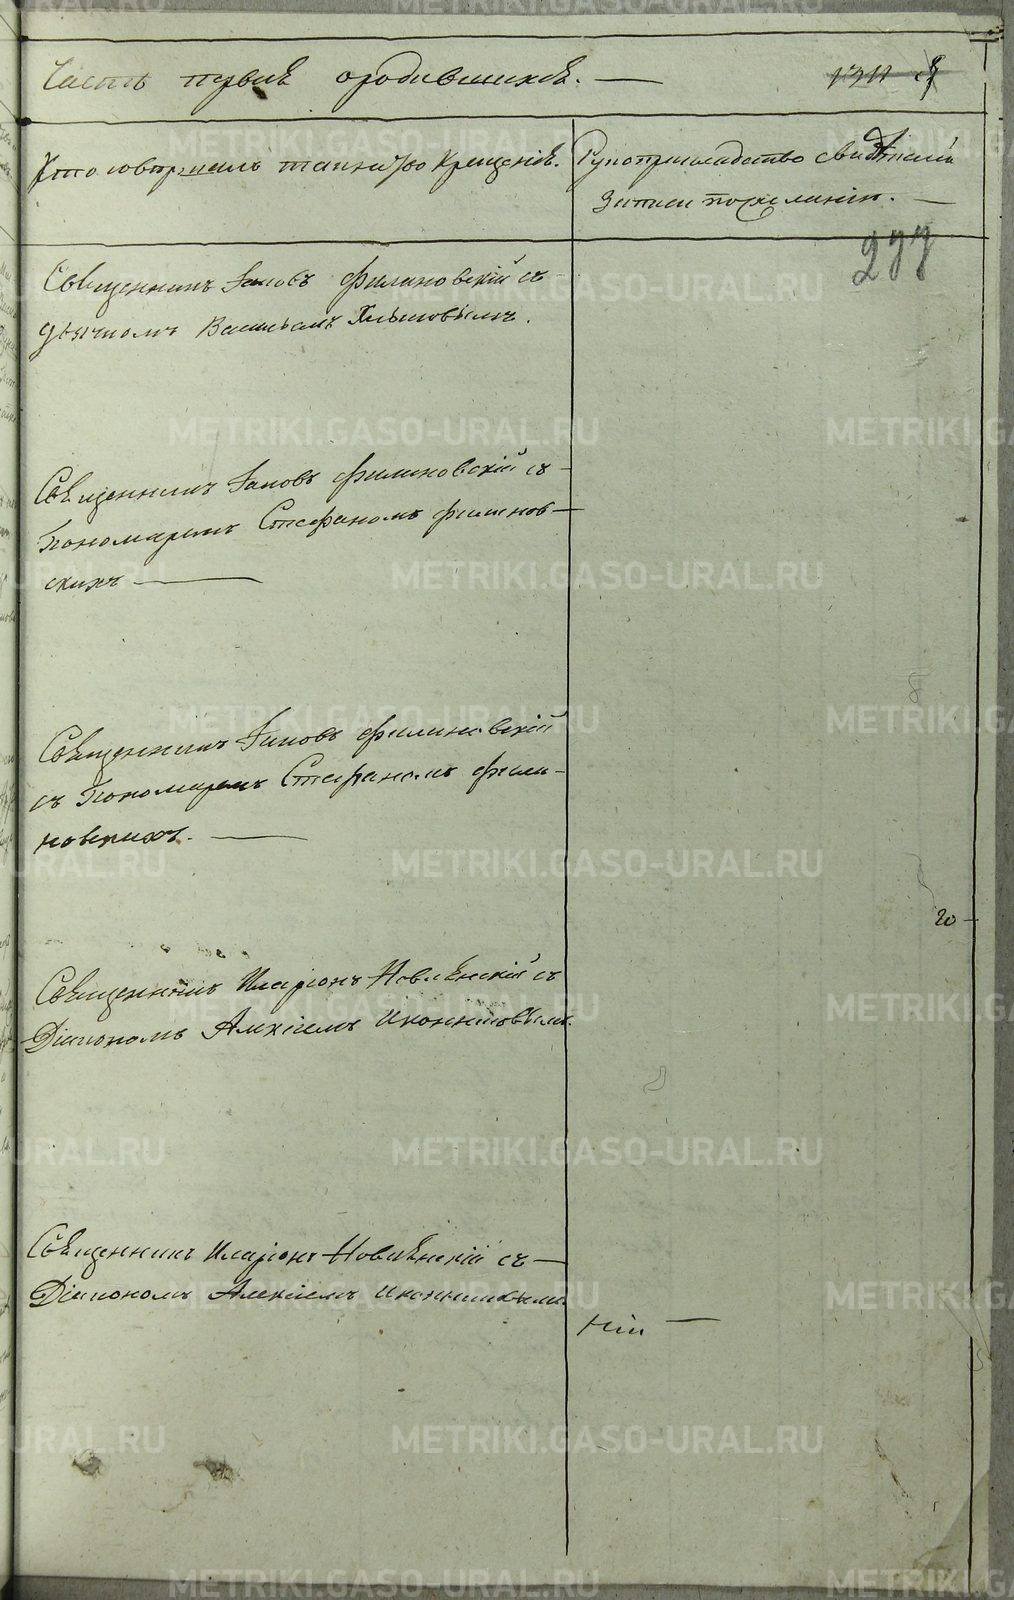 Часть первая о родившихся. —
Кто совершалъ таинство Крещенія.
Рукоприкладство свидѣтелей
записи по желанію. —
277
Священникъ Іаковъ Филановскій съ
дьячкомъ Васильемъ Хлыновымъ.
Священникъ Іаковъ Филиновскій съ —
Пономаремъ Стефаномъ Филинов —
скихъ —
Священникъ Іаковъ Филиновскій
съ Пономаремъ Стефаномъ Фили —
новскихъ. —
20 —
Священникъ Иларіонъ Новлѣнскій съ
Діакономъ Алексіемъ Иконниковымъ.
Священникъ Иларіонъ Новлѣнскій съ —
Діакономъ Алексіемъ Иконниковымъ
METRIKI.GASO-URAL.RU